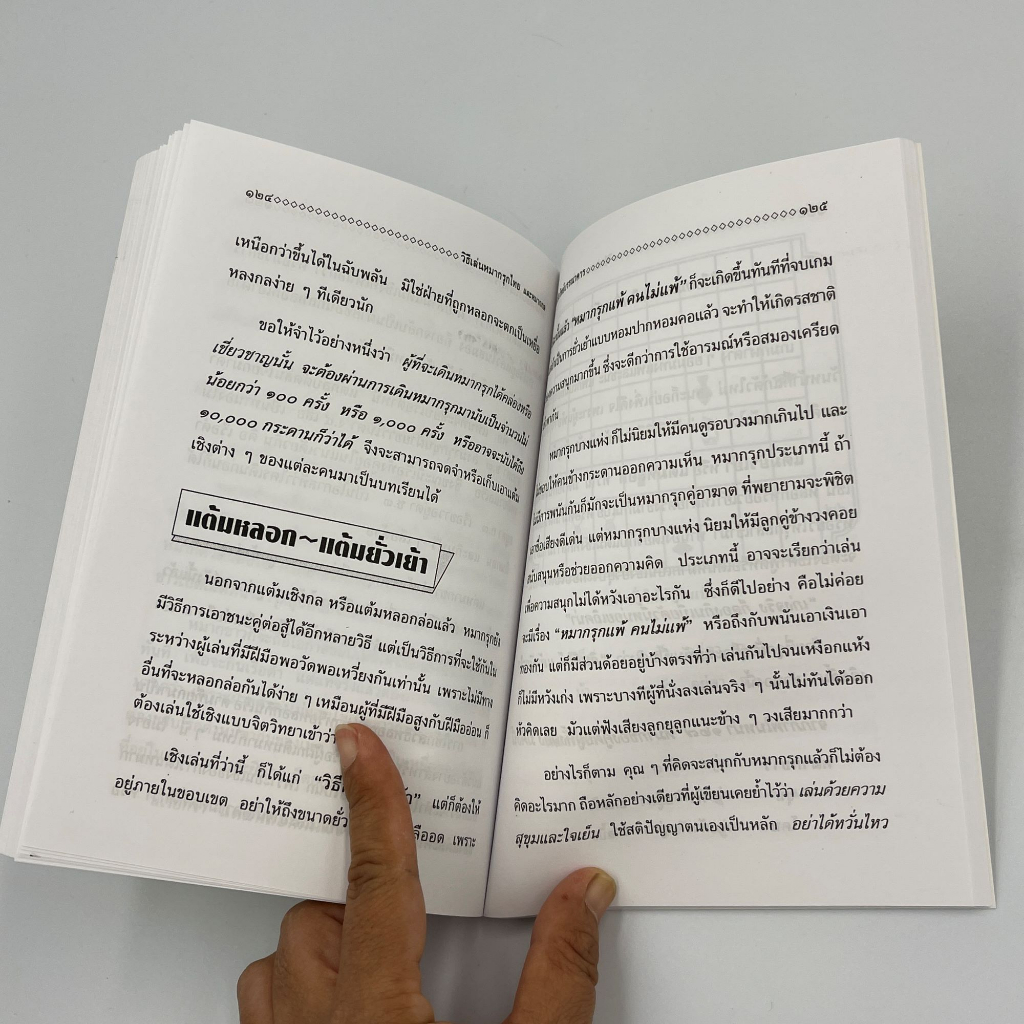 ๑๒๔
วิธีเล่นหมากรุกไทย และหมากฮอส
เหนือกว่าขึ้นได้ในฉับพลัน มิใช่ฝ่ายที่ถูกหลอกจะตกเป็นเหยื่อ
หลงกลง่าย ๆ ทีเดียวนัก
ขอให้จำไว้อย่างหนึ่งว่า ผู้ที่จะเดินหมากรุกได้คล่องหรือ
เชี่ยวชาญนั้น จะต้องผ่านการเดินหมากรุกมานับเป็นจำนวนไม่
น้อยกว่า ๑๐๐ ครั้ง หรือ ๑,๐๐๐ ครั้ง หรืออาจจะนับได้ถึง
๑๐,๐๐๐ กระดานก็ว่าได้ จึงจะสามารถจดจำหรือเก็บเอาแต้ม
เชิงต่าง ๆ ของแต่ละคนมาเป็นบทเรียนได้
แต้มหลอก~แต้มยั่วเย้า
นอกจากแต้มเชิงกล หรือแต้มหลอกล่อแล้ว หมากรุกยัง
มีวิธีการเอาชนะคู่ต่อสู้ได้อีกหลายวิธี แต่เป็นวิธีการที่จะใช้กันใน
ระหว่างผู้เล่นที่มีฝีมือพอวัดพอเหวี่ยงกันเท่านั้น เพราะไม่มีทาง
อื่นที่จะหลอกล่อกันได้ง่าย ๆ เหมือนผู้ที่มีฝีมือสูงกับฝีมืออ่อน ก็
ต้องเล่นใช้เชิงแบบจิตวิทยาเข้าว่า
เชิงเล่นที่ว่านี้ ก็ได้แก่ “วิธี แต่ก็ต้องให้
อยู่ภายในขอบเขต อย่าให้ถึงขนาดยั่ว เพราะ
๑๒๕
แล้ว “หมากรุกแพ้ คนไม่แพ้” ก็จะเกิดขึ้นทันทีที่จบเกม
เป็นการยั่วเย้าแบบหอมปากหอมคอแล้ว จะทำให้เกิดรสชาติ
ความสนุกมากขึ้น ซึ่งจะดีกว่าการใช้อารมณ์หรือสมองเครียด
กัน
หมากรุกบางแห่ง ก็ไม่นิยมให้มีคนดูรอบวงมากเกินไป และ
ให้คนข้างกระดานออกความเห็น หมากรุกประเภทนี้ ถ้า
มีการพนันกันก็มักจะเป็นหมากรุกคู่อาฆาต ที่พยายามจะพิชิต
เอาชื่อเสียงดีเด่น แต่หมากรุกบางแห่ง นิยมให้มีลูกคู่ข้างวงคอย
สนับสนุนหรือช่วยออกความคิด ประเภทนี้ อาจจะเรียกว่าเล่น
เพื่อความสนุกไม่ได้หวังเอาอะไรกัน ซึ่งก็ดีไปอย่าง คือไม่ค่อย
จะมีเรื่อง “หมากรุกแพ้ คนไม่แพ้” หรือถึงกับพนันเอาเงินเอา
ทองกัน แต่ก็มีส่วนด้อยอยู่บ้างตรงที่ว่า เล่นกันไปจนเหงือกแห้ง
ก็ไม่มีหวังเก่ง เพราะบางทีผู้ที่นั่งลงเล่นจริง ๆ นั้นไม่ทันได้ออก
หัวคิดเลย มัวแต่ฟังเสียงลูกยุลูกแนะข้าง ๆ วงเสียมากกว่า
อย่างไรก็ตาม คุณ ๆ ที่คิดจะสนุกกับหมากรุกแล้วก็ไม่ต้อง
คิดอะไรมาก ถือหลักอย่างเดียวที่ผู้เขียนเคยย้ำไว้ว่า เล่นด้วยความ
สุขุมและใจเย็น ใช้สติปัญญาตนเองเป็นหลัก อย่าได้หวั่นไหว